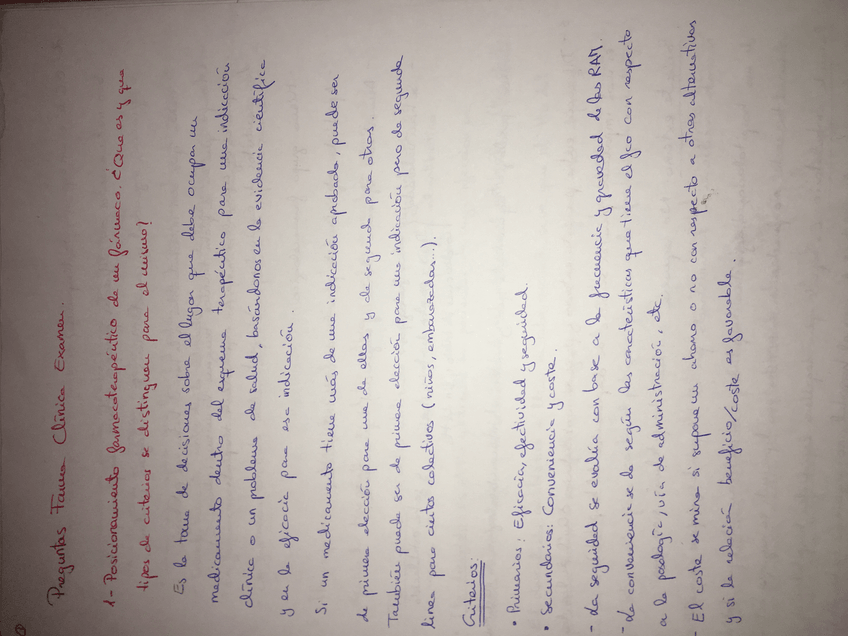 ①
Preguntas Farma Clínica Examen.
1- Posicionamiento farmacoterapéutico de un fármaco. ¿Que es y que
tipos de criterios se distinguen para el mismo?
Es la toma de decisiones sobre el lugar que debe ocupar un
medicamento dentro del esquema terapéutico para una indicación
clínica o un problema de salud, basándonos en la evidencia científica
y en la eficacia para esa indicación.
Si un medicamento tiene más de una indicación aprobada, puede ser
de primera elección para una de ellas y de segunda para otras.
También puede ser de primera elección para una indicación pero de segunda
línea para ciertos colectivos (niños, embarazadas...).
Criterios:
• Primarios: Eficacia, efectividad y seguridad.
• Secundarios: Conveniencia y coste.
- La seguridad se evalúa con base a la frecuencia y gravedad de las RAM.
- La conveniencia se da según las características que tiene el fco con respecto
a la posología, vía de administración, etc.
- El coste se mira si supone un ahorro o no con respecto a otras alternativas
y si la relación beneficio/coste es favorable.